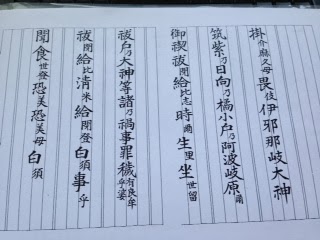 掛介麻久母畏伎伊邪那岐大神
筑紫乃日向乃橘小戸乃阿波岐原爾
御禊祓閉給比志時爾生里坐世留
祓戸乃大神等諸乃禍事罪穢有良牟乎婆
祓閉給比清米給閉登白須事乎
聞食世登恐美恐美母白須